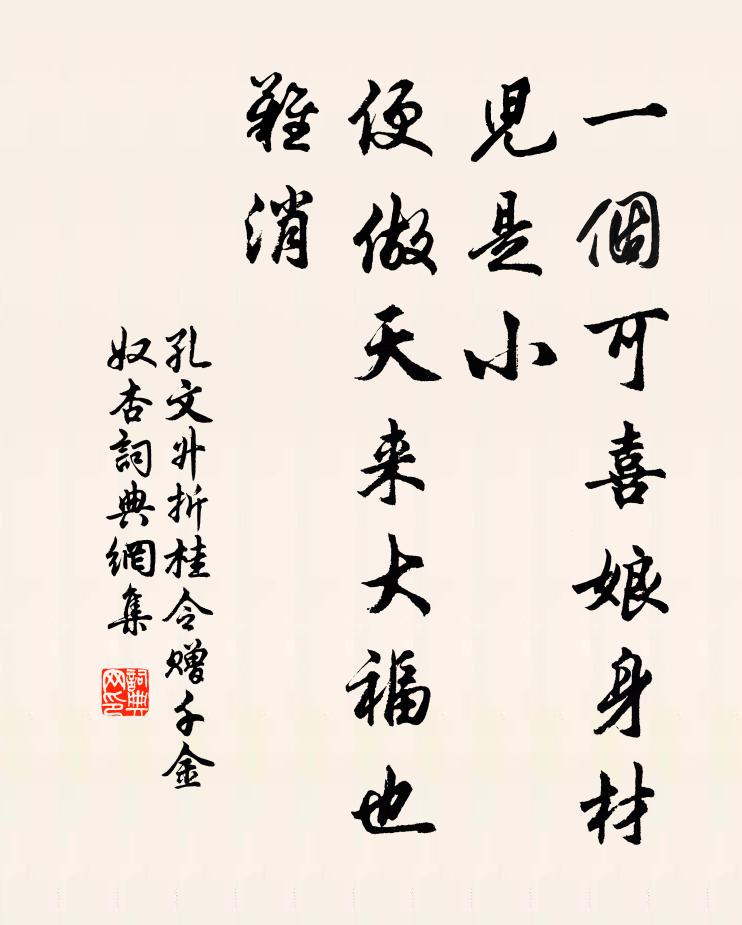 一個可喜娘身材
児是小
便做天来大福也
難消
孔文升折桂令赠千金
奴杏詞典網集
詞典
网印